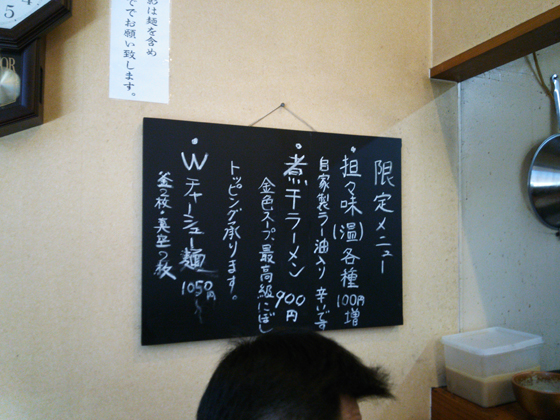 限定メニュー
・担々味(温)各種
100円増
自家製ラー油入り 辛いです
・煮干ラーメン
900円
金色スープ、最高級にぼし
トッピング承ります。
・Wチャーシュー麺
1050円〜
釜2枚・真空2枚
影は麺を含め
ででお願い致します。
5